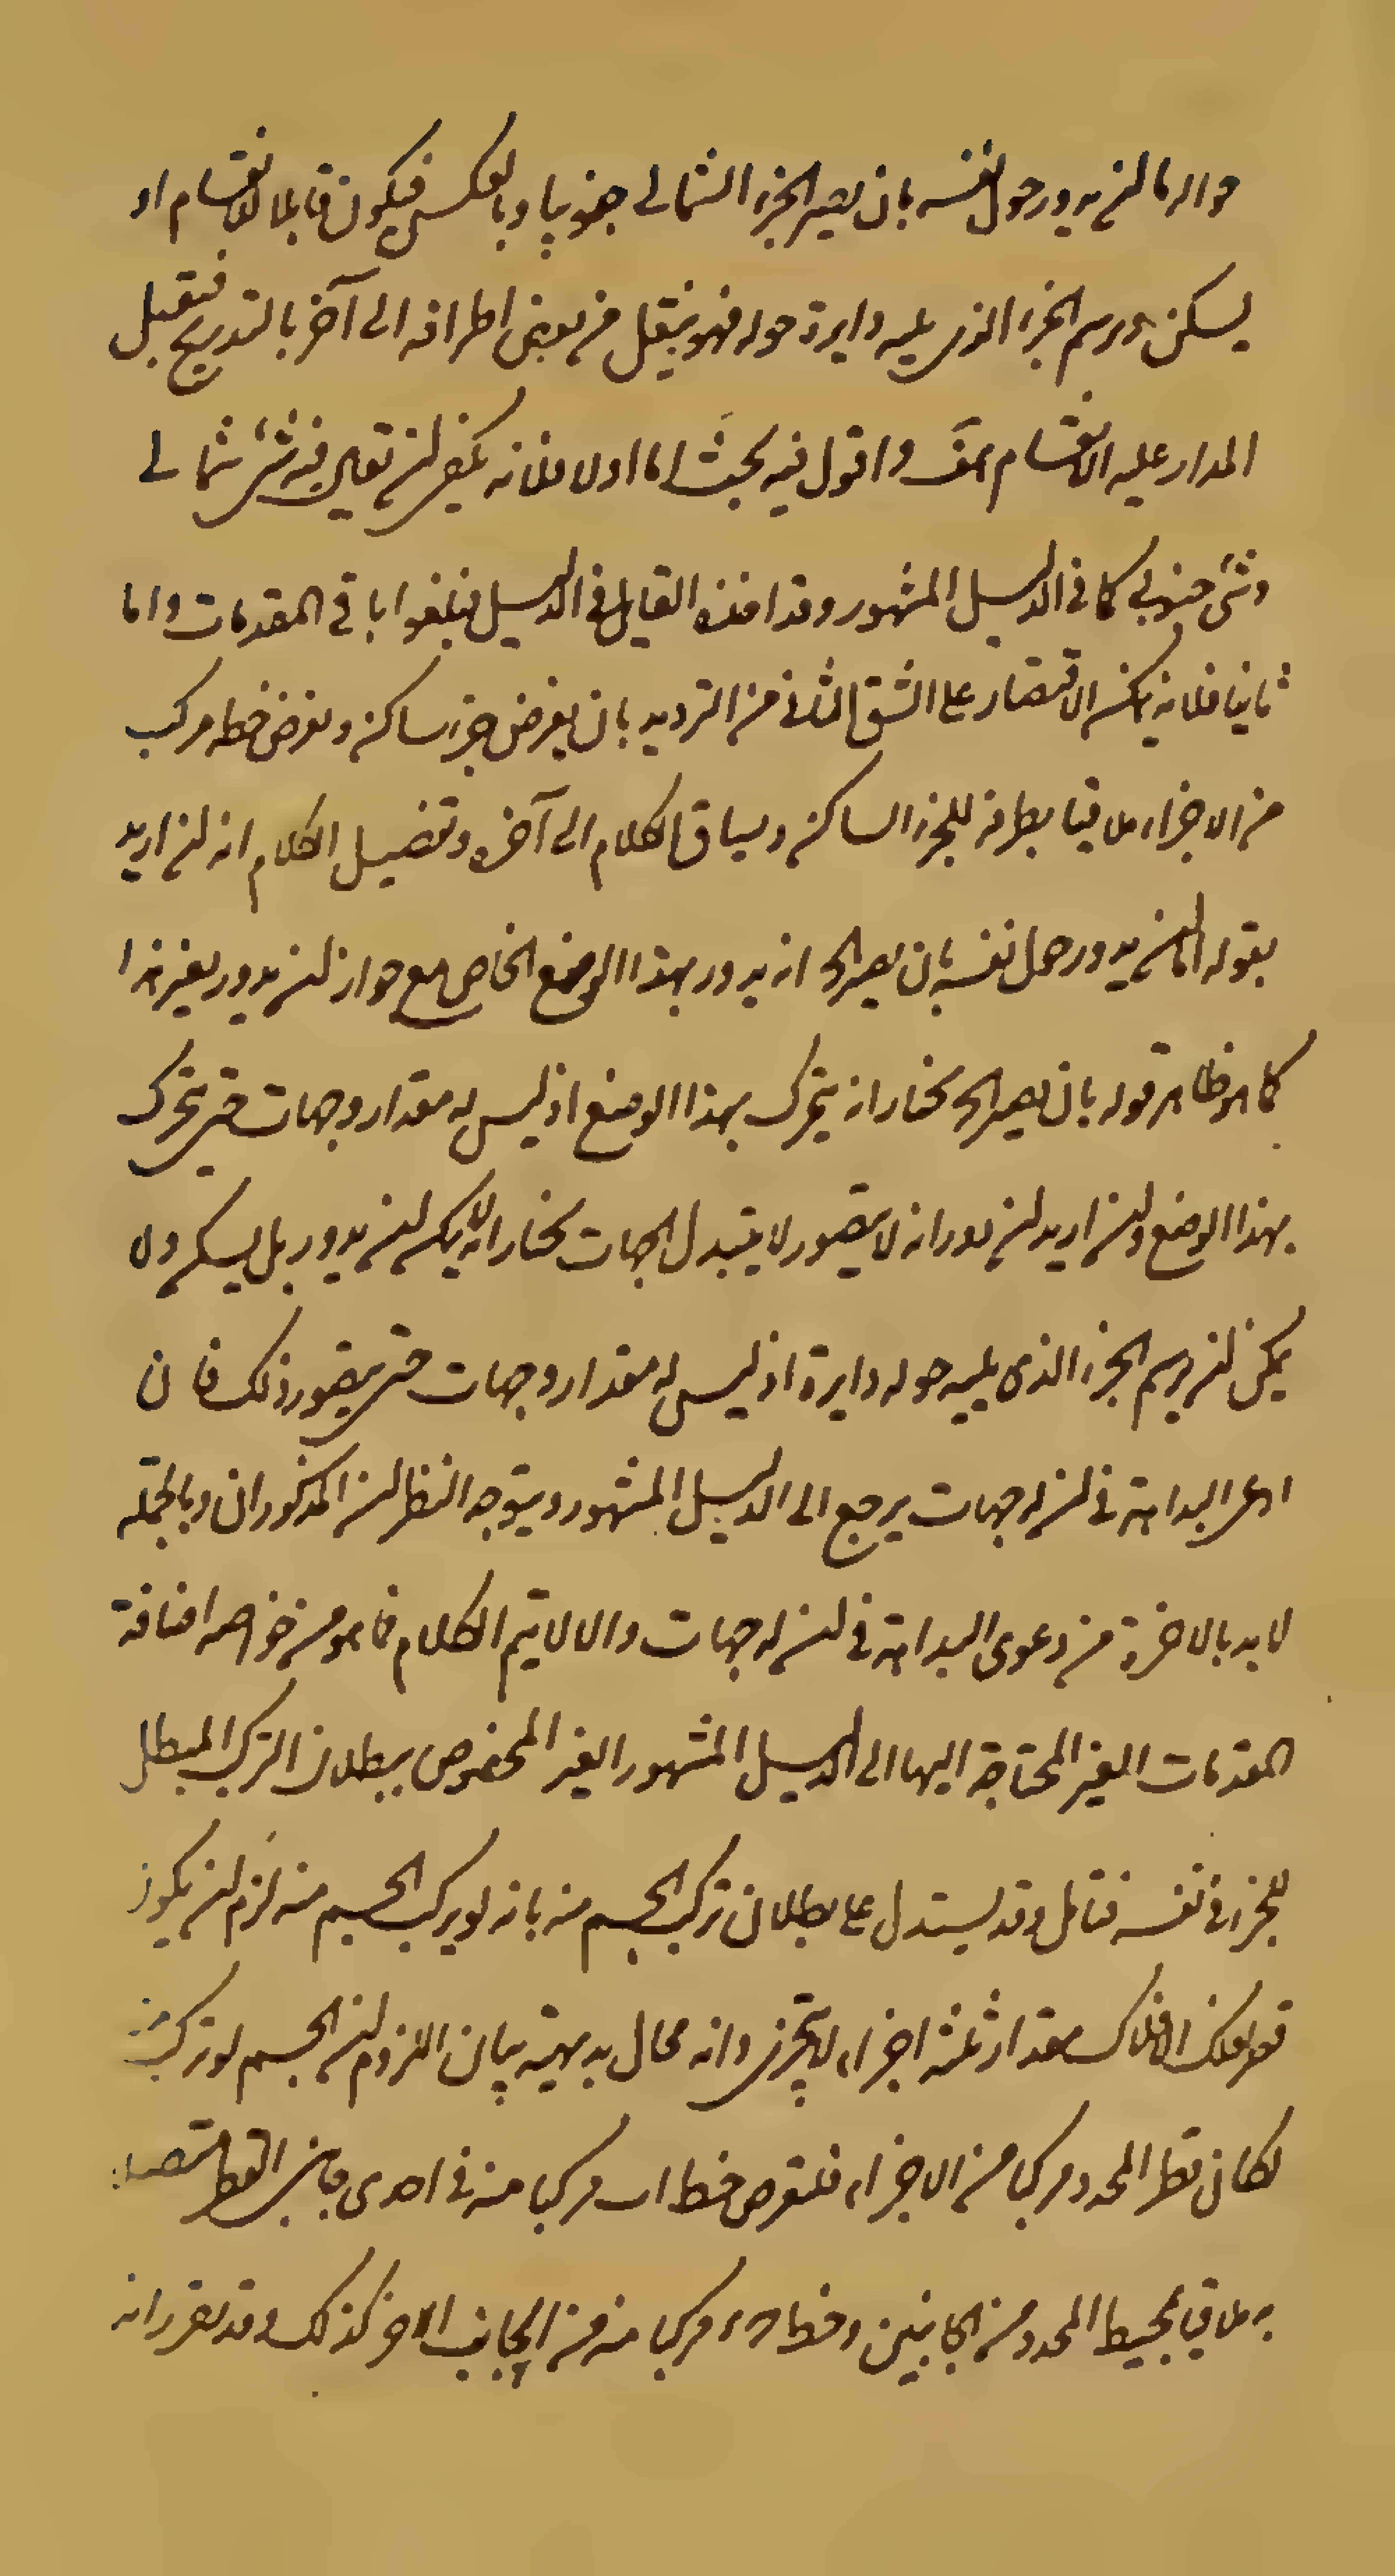 حوله اما ان يدور حول نفسه بان يصير الجزء الشمالى جنوبيا وبالعكس فيكون قابلا للانقسام او
يسكن ويرسم الجزء الذى يليه دايرة حوله فهو ينتقل من بعض اطرافه الى آخر بالتدريج فيقبل
المدار عليه الانقسام هف واقول فيه بحث اما اولا فلانه يكفى ان تعين فيه شئ شمالى
وشئ جنوبى كما فى الدليل المشهور وقد اخذه القايل فى الدليل فيلغوا باقى المقدمات واما
ثانيا فلانه يمكن الاقتصار على الشق الثانى من الترديد بان يفرض جزء ساكن ويفرض خط مركب
من الاجزاء ملاقيا بطرفه للجزء الساكن ويساق الكلام الى آخره وتفصيل الكلام انه ان اريد
بقوله اما ان يدور حول نفسه بان يصير الخ انه يدور بهذا الوضع الخاص مع جواز ان يدور بغير هذا
كما هو ظاهر قوله بان يصير الخ نختار انه يتحرك بهذا الوضع اذ ليس له مقدار وجهات حتى يتحرك
بهذا الوضع وان اريد ان دورانه لا يتصور لا يتبدل الجهات نختار انه لا يمكن ان يدور بل يسكن ولا
يمكن ان يرسم الجزء الذى يليه حوله دايرة اذ ليس له مقدار وجهات حتى يتصور ذلك فان
ادعى البداهة فى ان له جهات يرجع الى الدليل المشهور ويتوجه النظران المذكوران وبالجملة
لا بد بالاخرة من دعوى البداهة فى ان له جهات والا لا يتم الكلام فما هو من خواصه اضافة
المقدمات الغير المحتاجة اليها الى الدليل المشهور الغير المخصوص ببطلان التركب المبطل
للجزء فى نفسه فتامل وقد يستدل على بطلان تركب الجسم منه بانه لو تركب الجسم منه لزم ان يكون
قعر فلك الافلاك مقدار ثلثه اجزاء لا يتجزى وانه محال بديهية بيان اللزوم ان الجسم لو تركب منه
لكان قطر المحدد مركبا من الاجزاء فلنفرض خط اب مركبا منه فى احدى جانبى القطر متصلا
به ملاقيا بمحيط المحدد من الجانبين وخط حء مركبا منه من الجانب الاخر كذلك وقد تقرر انه